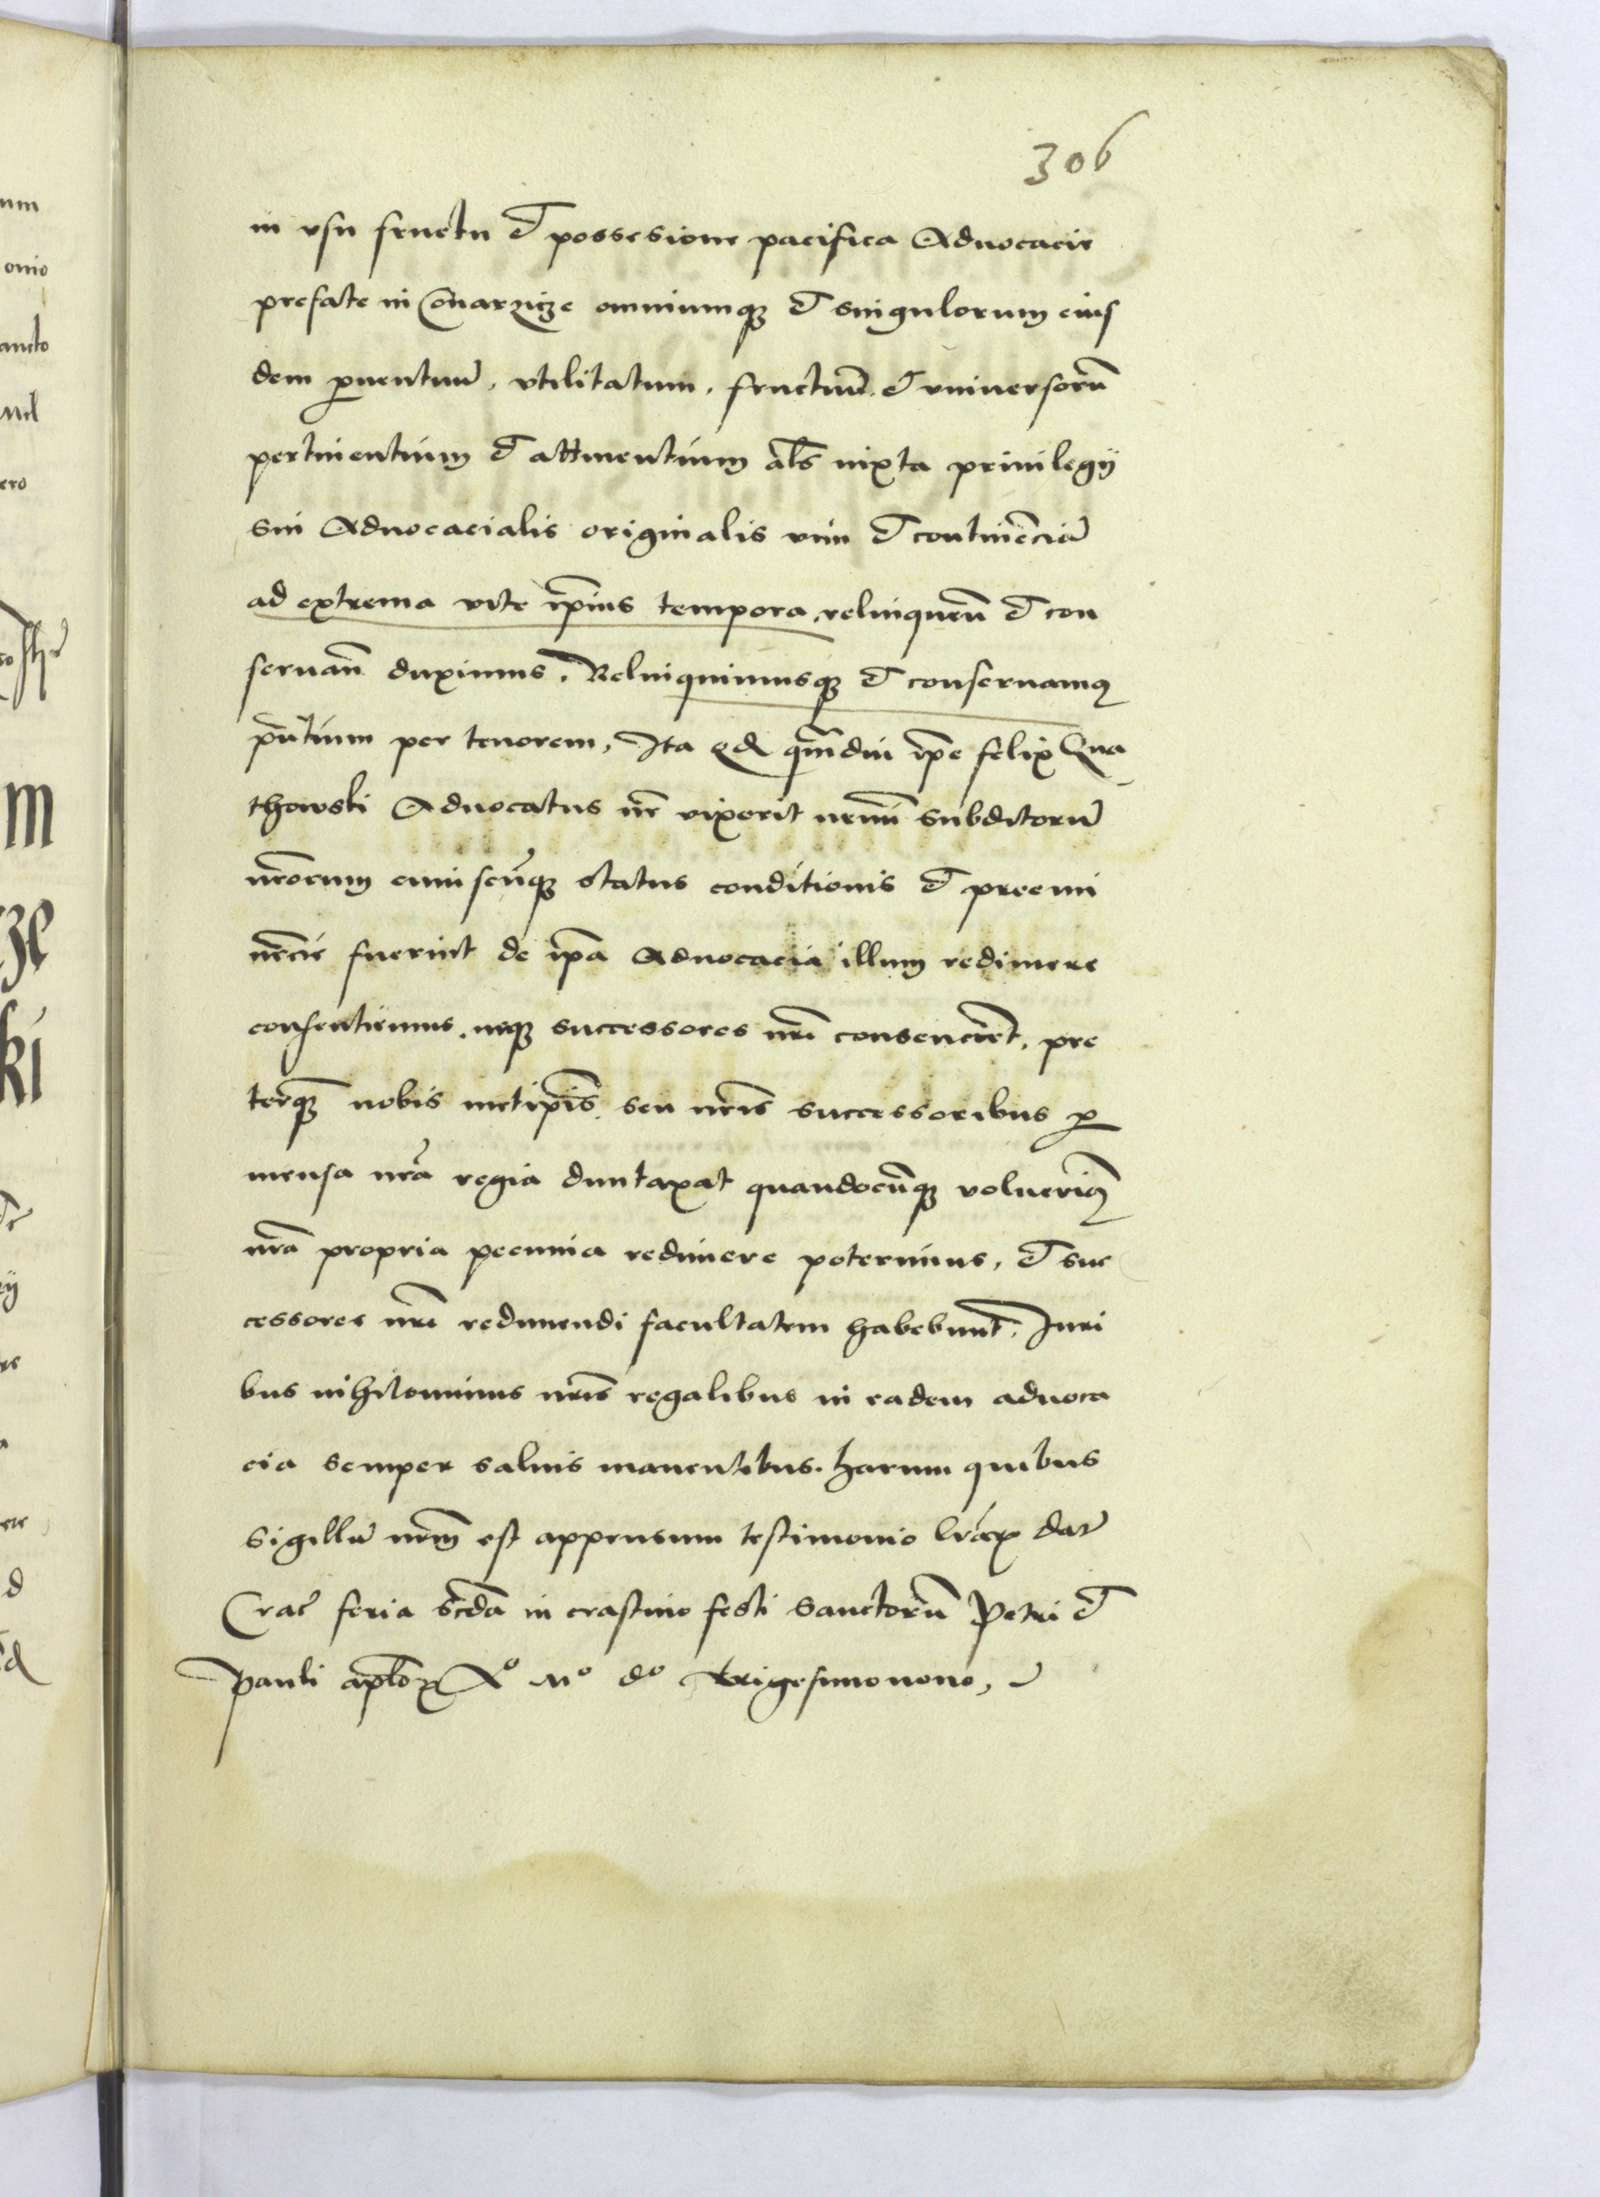 306
in vsu fructu et possesione pacifica Aduocacie
prefate in Conarzicze omniumqꝫ et singulorum eius
dem ꝓuentuũ, vtilitatum, fructuũ et vniuersorũ
pertinentium et attinentium al̃s iuxta priuilegij
sui Aduocacialis originalis vim et continẽciã
ad extrema vite ip̃ius tempora relinqueñ et con
seruañ duximus. Relinquimusqꝫ et conseruamꝰ
p̃ntium per tenorem, Ita qd̃ qm̃diu ip̃e felix
thowski Aduocatus nr̃ vixerit nemini subditorũ
nr̃orum cuiuscũqꝫ status conditionis et preemi
nẽcie fuerint de ip̃a Aduocacia illum redimere
consentiemus, neqꝫ successores nr̃i consencient, pre
terqꝫ nobis metip̃is seu nr̃is successoribus ꝓ
mensa nr̃a regia duntaxat quandocũqꝫ voluerimꝰ
nr̃a propria pecunia redimere poterimus, et suc
cessores nr̃i redimendi facultatem habebunt, Iuri
bus nihilominus nr̃is regalibus in eadem aduoca
cia semper saluis manentibus. harum quibus
sigillũ nr̃m est appensum testimonio lr̃aꝝ dat̃
Crac̃ feria sc̃da in crastino festi Sanctorũ Petri et
Pauli ap̃loꝝ Aº Mº dº trigesimonono,